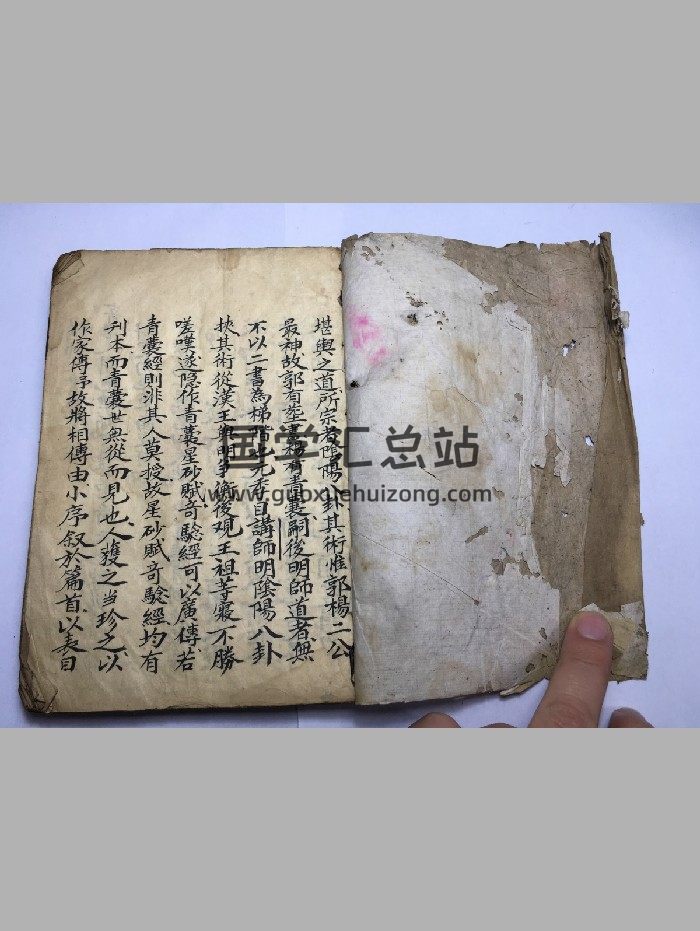 堪輿之道所宗者陰陽八卦其術惟郭楊二公
最神故郭有葬書楊有青囊嗣後明師道者無
不以二書為梯階也元季目講師明陰陽八卦
挾其術從漢王與明爭衡後观王祖等寢不勝
嗟嘆遂隐作青囊星砂賦竒騐經可以廣傳若
青囊經則非其人莫授故星砂賦竒騐經均有
刋本而青囊世無從而見也人獲之当珍之以
作家傳予故將相傳由小序叙於篇首以表目
国学汇总站
www.guoxuehuizong.com